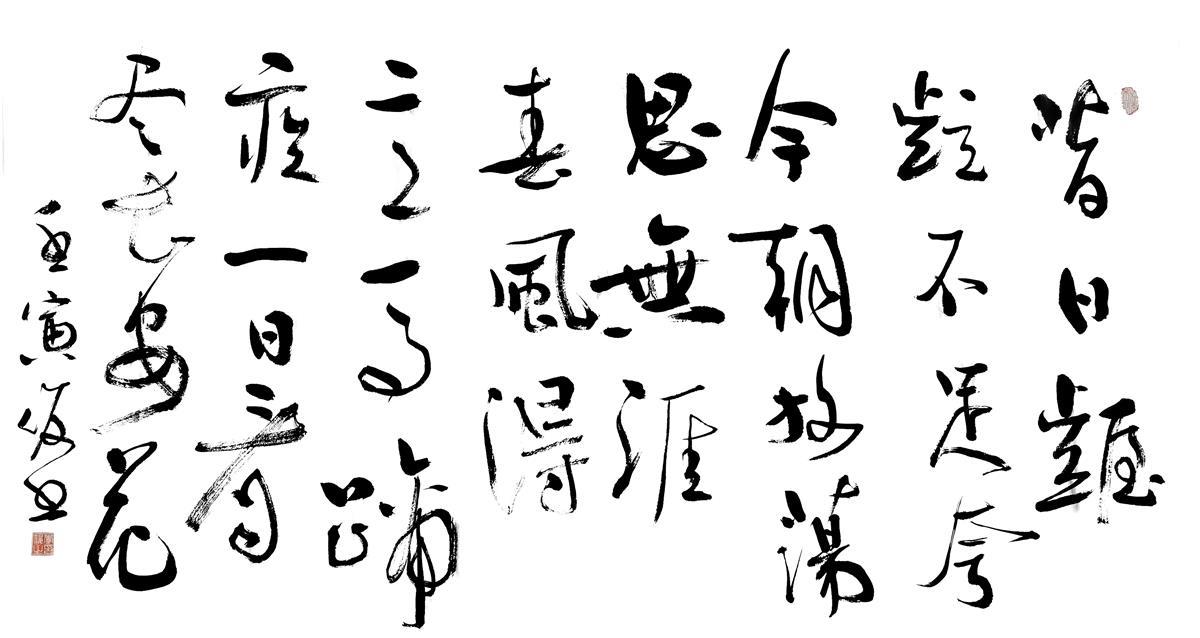 昔日齷
齪不足夸
今朝放蕩
思無涯
春風得
意马蹄
疾一日看
尽长安花
壬寅书